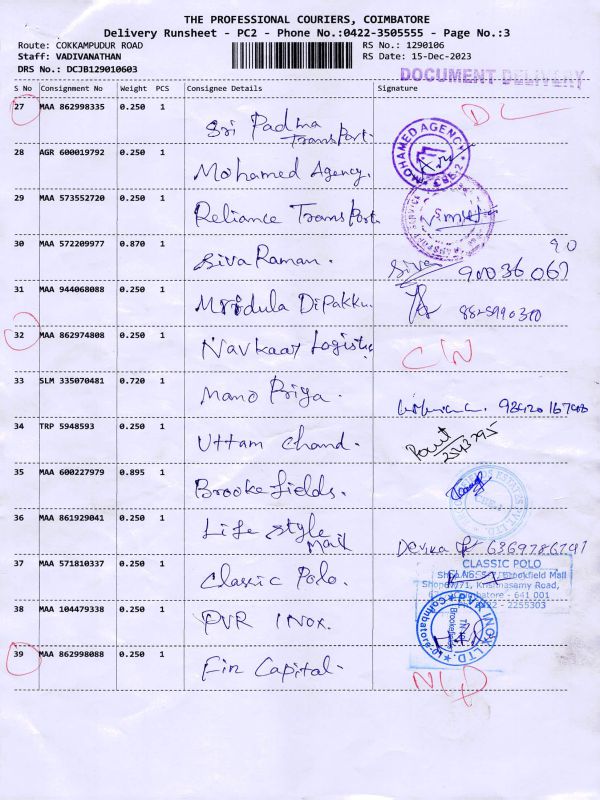 THE PROFESSIONAL COURIERS, COIMBATORE
Delivery Runsheet - PC2 - Phone No.:0422-3505555 - Page No.:3
Route: COKKAMPUDUR ROAD RS No.: 1290106
Staff: VADIVANATHAN RS Date: 15-Dec-2023
DRS No.: DCJB129010603
DOCUMENT DELIVERY
S No Consignment No Weight PCS Consignee Details Signature
27 MAA 862998335 0.250 1 Sri Padma Transport. DL
28 AGR 600019792 0.250 1 Mohamed Agency.
MOHAMED AGENCY CBE-2
29 MAA 573552720 0.250 1 Reliance Transport
30 MAA 572209977 0.870 1 Siva Raman. Siva
31 MAA 944068088 0.250 1 Mridula Dipakku.
32 MAA 862974808 0.250 1 Navkaar Logistic CN
33 SLM 335070481 0.720 1 Mano Priya.
34 TRP 5948593 0.250 1 Uttam chand.
35 MAA 600227979 0.895 1 Brooke fields.
36 MAA 861929041 0.250 1 Life style Mail Devika
37 MAA 571810337 0.250 1 Classic Polo.
CLASSIC POLO
Brookfield Mall
Krishnasamy Road,
Coimbatore - 641 001
0422 - 2255303
38 MAA 104479338 0.250 1 PVR INOX.
PVR INOX LTD. Coimbatore
39 MAA 862998088 0.250 1 Fin Capital.